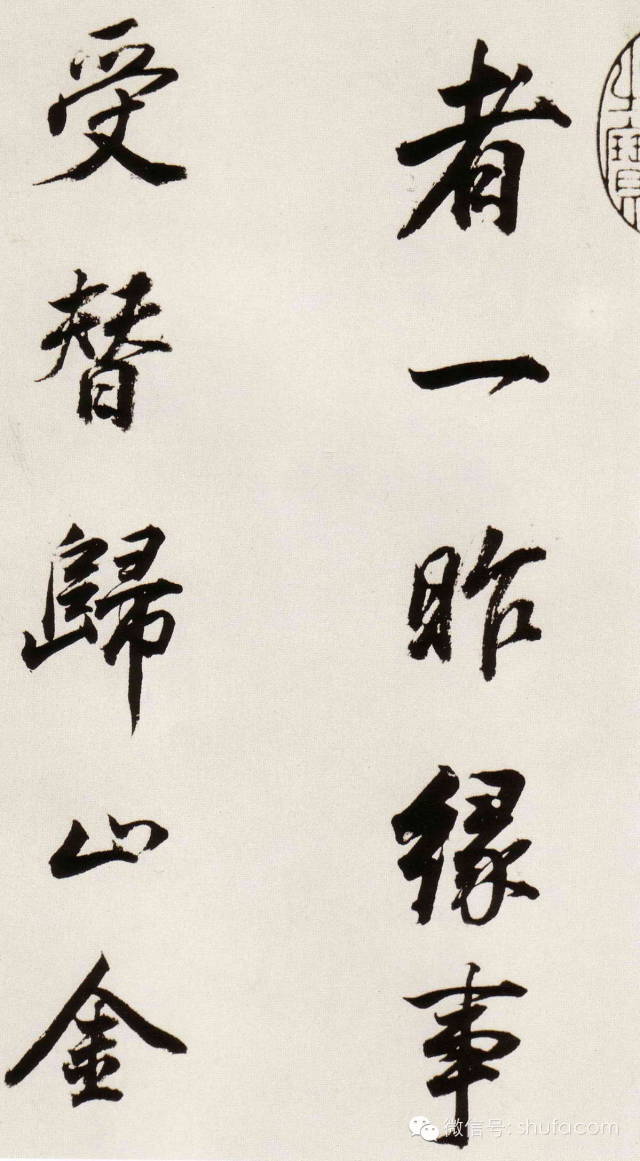 者一昨緣事
受替歸山金
微信号: shufacom